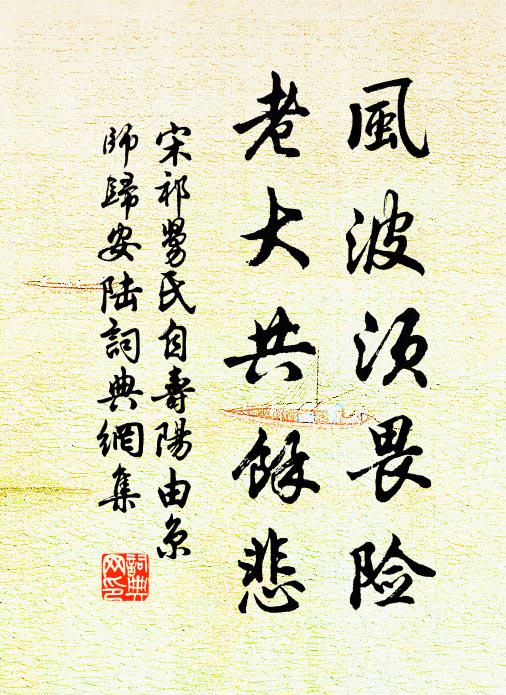 風波须畏险
老大共餘悲
宋祁舅氏自壽陽由京
師歸安陆詞典網集
詞典网印